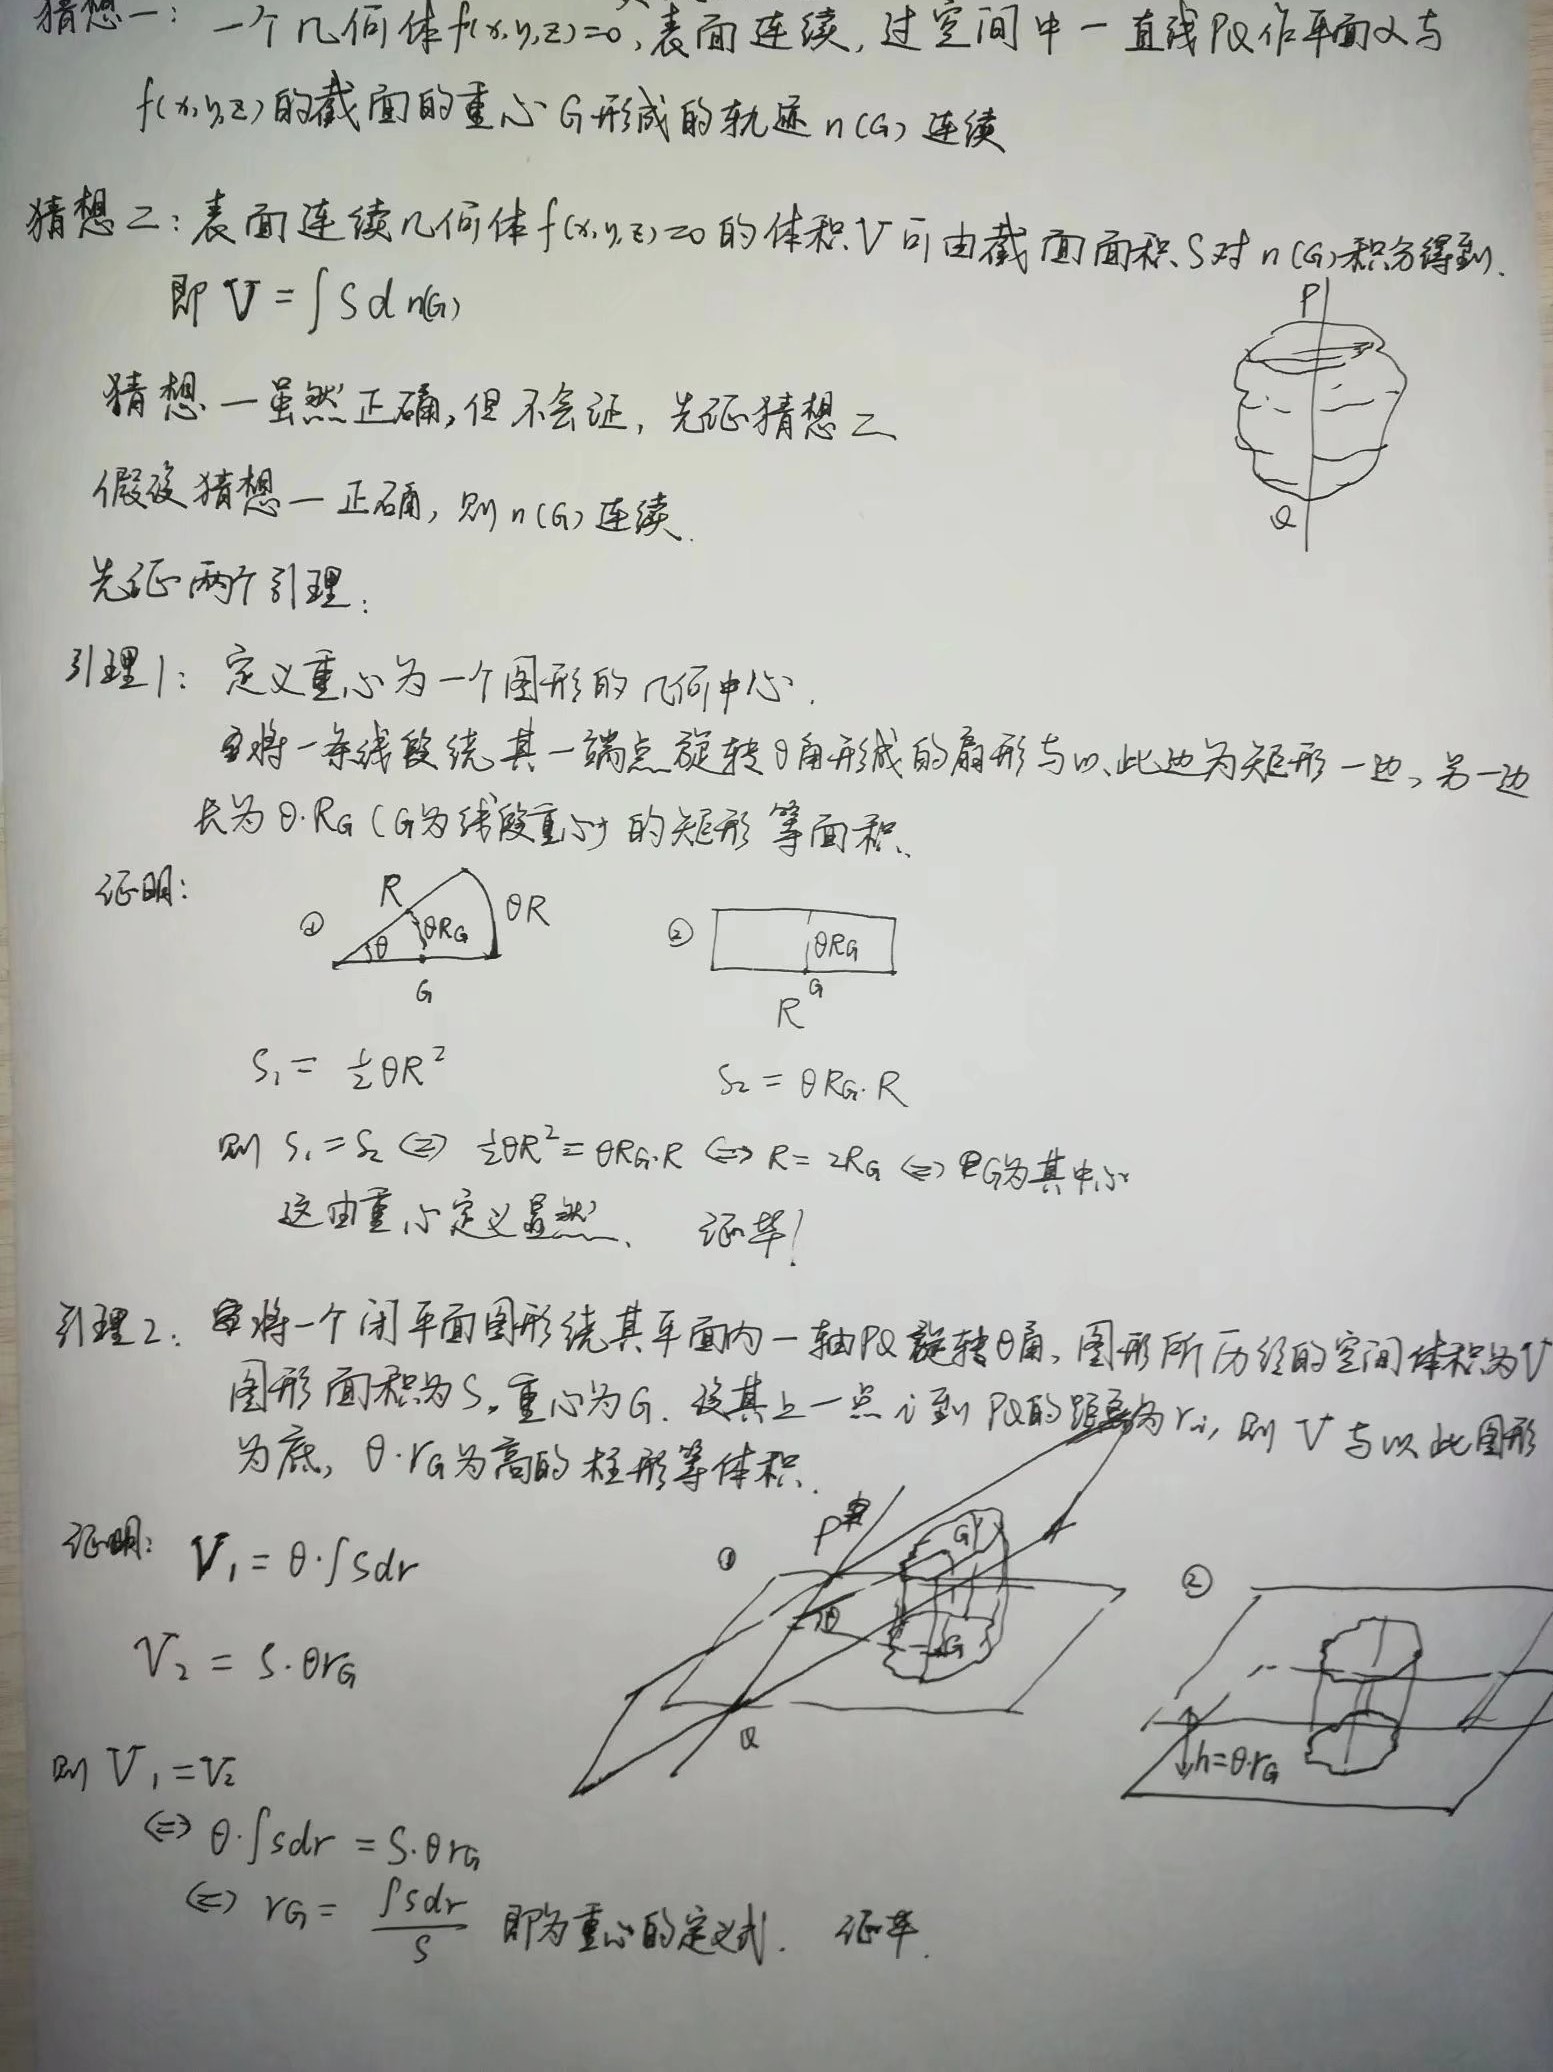 猜想一：一个几何体f(x,y,z)=0，表面连续，过空间中一直线PQ作平面α与
f(x,y,z)的截面的重心G形成的轨迹n(G)连续
猜想二：表面连续几何体f(x,y,z)=0的体积V可由截面面积S对n(G)积分得到.
即 V=∫S d n(G)
P
Q
猜想一虽然正确，但不会证，先证猜想二
假设猜想一正确，则n(G)连续.
先证两个引理：
引理1：定义重心为一个图形的几何中心.
将一条线段绕其一端点旋转θ角形成的扇形与以此边为矩形一边，另一边
长为θ·R_G（G为线段重心）的矩形等面积.
证明：
① R θ θR_G θR G
② θR_G G R
S₁=½θR²
S₂=θR_G·R
则 S₁=S₂ ⇔ ½θR²=θR_G·R ⇔ R=2R_G ⇔ G为其中心
这由重心定义显然. 证毕!
引理2：将一个闭平面图形绕其平面内一轴PQ旋转θ角，图形所历经的空间体积为V
图形面积为S，重心为G. 设其上一点i到PQ的距离为r_i，则V与以此图形
为底，θ·r_G为高的柱形等体积.
证明：V₁=θ·∫Sdr
① P θ G G Q
② h=θ·r_G
V₂=S·θr_G
则 V₁=V₂
⇔ θ·∫sdr=S·θr_G
⇔ r_G=∫sdr/S 即为重心的定义式. 证毕.